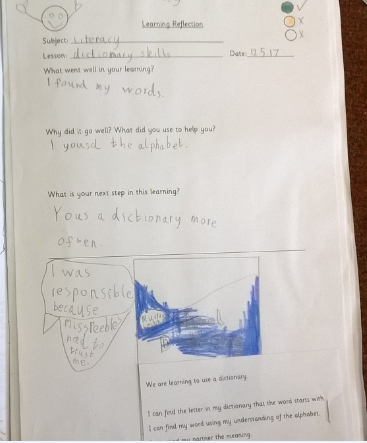 Learning Reflection
Subject: Literacy
Lesson: dictionary skills Date: 17.5.17
What went well in your learning?
I found my words.
Why did it go well? What did you use to help you?
I yousd the alphabet.
What is your next step in this learning?
Yous a dictionary more
often.
I was
responsible
because
Miss feeble
had to
trust
me.
We are learning to use a dictionary.
I can find the letter in my dictionary that the word starts with.
I can find my word using my understanding of the alphabet.
my partner the meaning.